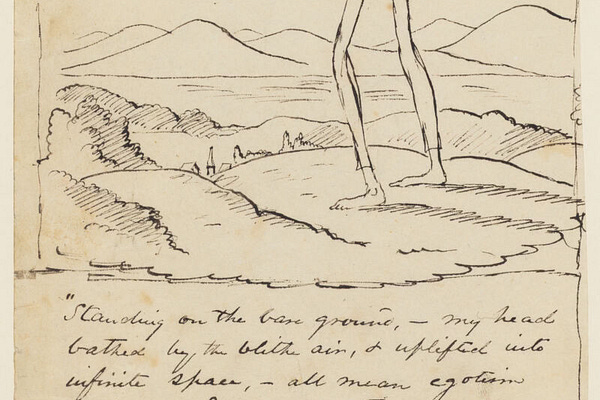 "Standing on the bare ground, – my head
bathed by the blithe air, & uplifted into
infinite space, – all mean egotism